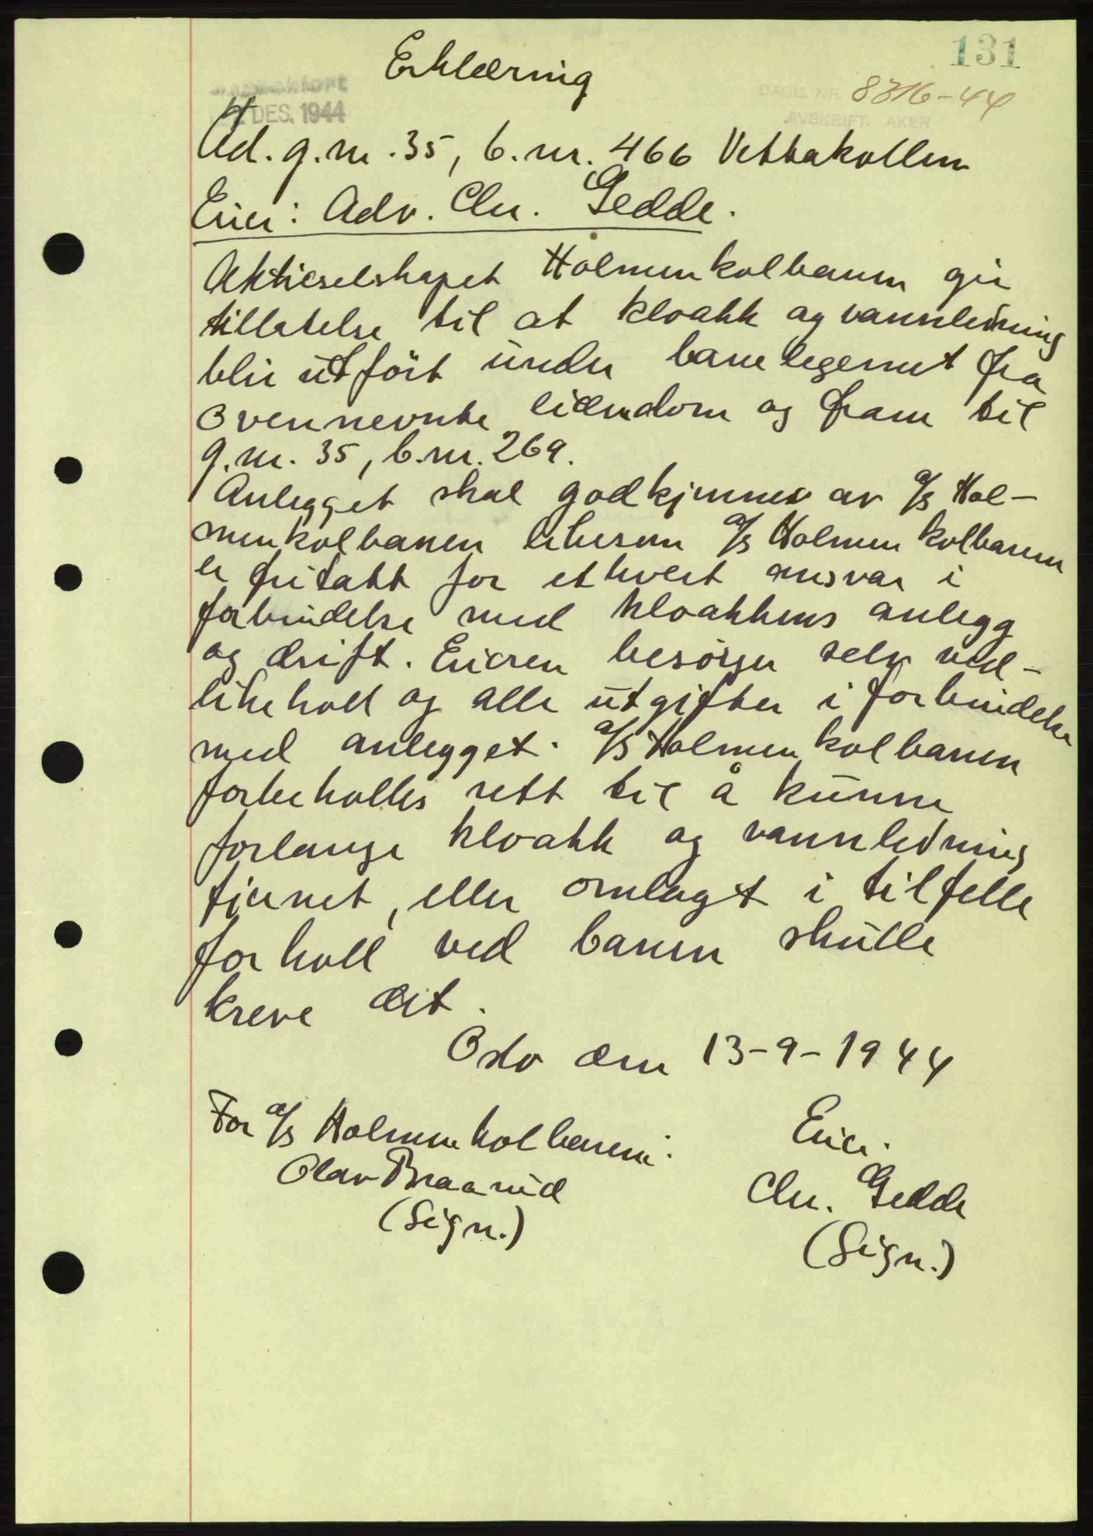 131
Erklæring
DES. 1944
DAGB. NR. 8316-44
AVSKRIFT. AKER
Ad. g.nr. 35, b.nr. 466 Vettakollen
Eier: Adv. Chr. Gedde.
Aktieselskapet Holmenkolbanen gir
tillatelse til at kloakk og vannledning
blir utført under banelegemet fra
ovennevnte eiendom og fram til
g.nr. 35, b.nr. 269.
Anlegget skal godkjennes av A/S Hol-
menkolbanen likesom A/S Holmenkolbanen
er fritatt for ethvert ansvar i
forbindelse med kloakkens anlegg
og drift. Eieren besørger selv ved-
likehold og alle utgifter i forbindelse
med anlegget. A/S Holmenkolbanen
forbeholdes rett til å kunne
forlange kloakk og vannledning
fjernet, eller omlagt i tilfelle
forhold ved banen skulle
kreve det.
Oslo den 13-9-1944
For A/S Holmenkolbanen: Eier.
Olav Braarud Chr. Gedde
(Sign.) (Sign.)